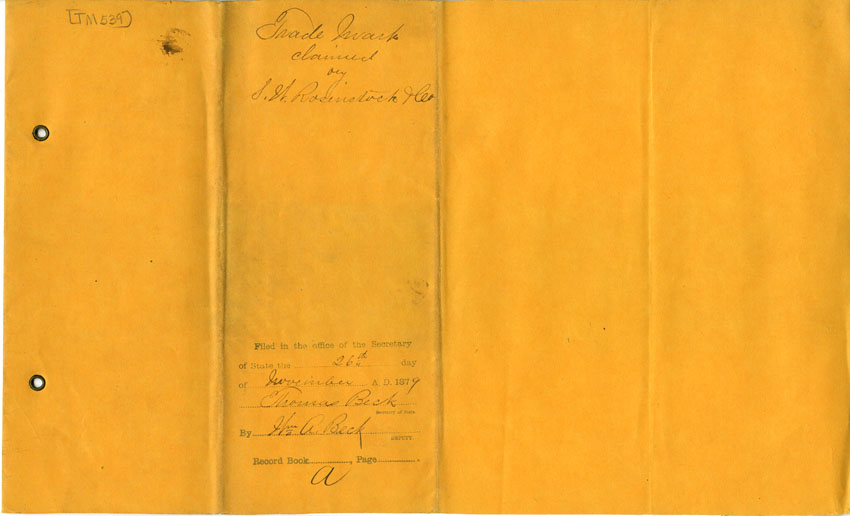 [TM 539]
Trade Mark
claimed
by
S. W. Rosenstock & Co
Filed in the office of the Secretary
of State the 26th day
of November A. D. 1879
Thomas Beck
Secretary of State
By Wm A. Beck
DEPUTY.
Record Book , Page
A